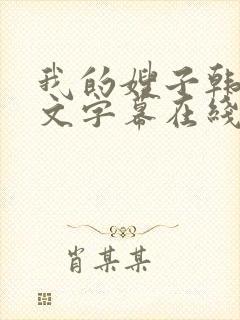 我的嫂子韩
文字幕在线
肖某某